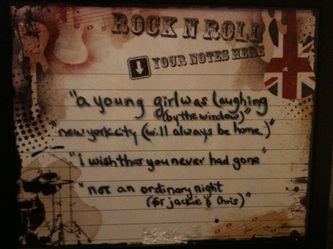 ROCK N ROLL
YOUR NOTES HERE
"a young girl was laughing
(by the window)"
"new york city (will always be home)"
"i wish that you never had gone"
"not an ordinary night
(for jackie & Chris)"